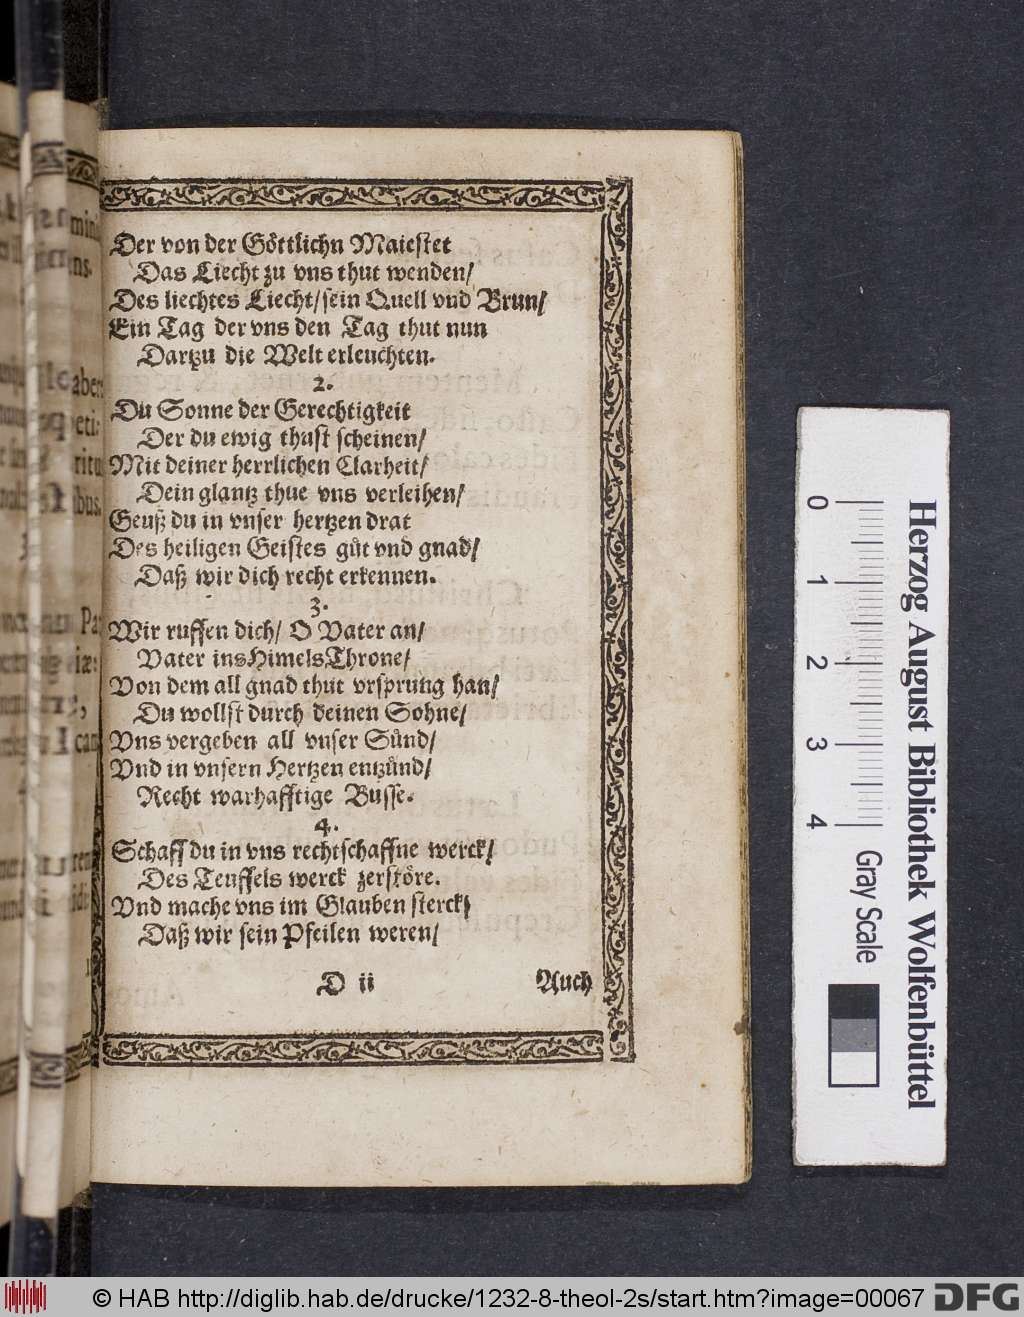 Der von der Göttlichn Maiestet
Das Liecht zu vns thut wenden/
Des liechtes Liecht/sein Quell vnd Brun/
Ein Tag der vns den Tag thut nun
Dartzu die Welt erleuchten.
2.
Du Sonne der Gerechtigkeit
Der du ewig thust scheinen/
Mit deiner herrlichen Clarheit/
Dein glantz thue vns verleihen/
Geuß du in vnser hertzen drat
Des heiligen Geistes güt vnd gnad/
Daß wir dich recht erkennen.
3.
Wir ruffen dich/ O Vater an/
Vater ins Himels Throne/
Von dem all gnad thut vrsprung han/
Du wollst durch deinen Sohne/
Vns vergeben all vnser Sünd/
Vnd in vnsern Hertzen entzünd/
Recht warhafftige Busse.
4.
Schaff du in vns rechtschaffne werck/
Des Teuffels werck zerstöre.
Vnd mache vns im Glauben sterck/
Daß wir sein Pfeilen weren/
D ii
Auch
0 1 2 3 4
Gray Scale
Herzog August Bibliothek Wolfenbüttel
© HAB http://diglib.hab.de/drucke/1232-8-theol-2s/start.htm?image=00067
DFG